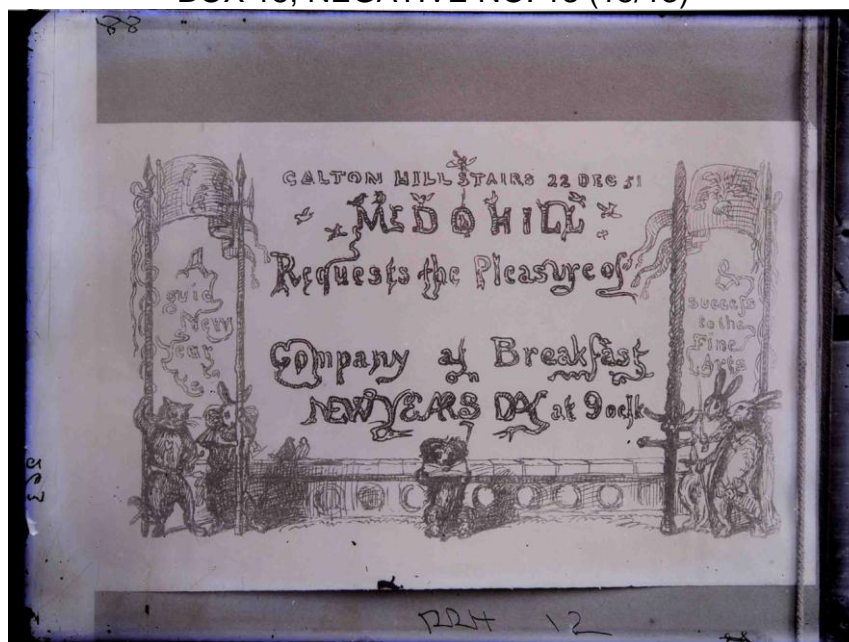 CALTON HILL STAIRS 22 DEC 51
Mr D O HILL
Requests the Pleasure of
Company at Breakfast
on
NEW YEARS DAY at 9 oclk
A
guid
New
Year
&
success
to the
Fine
Arts
RRH 12